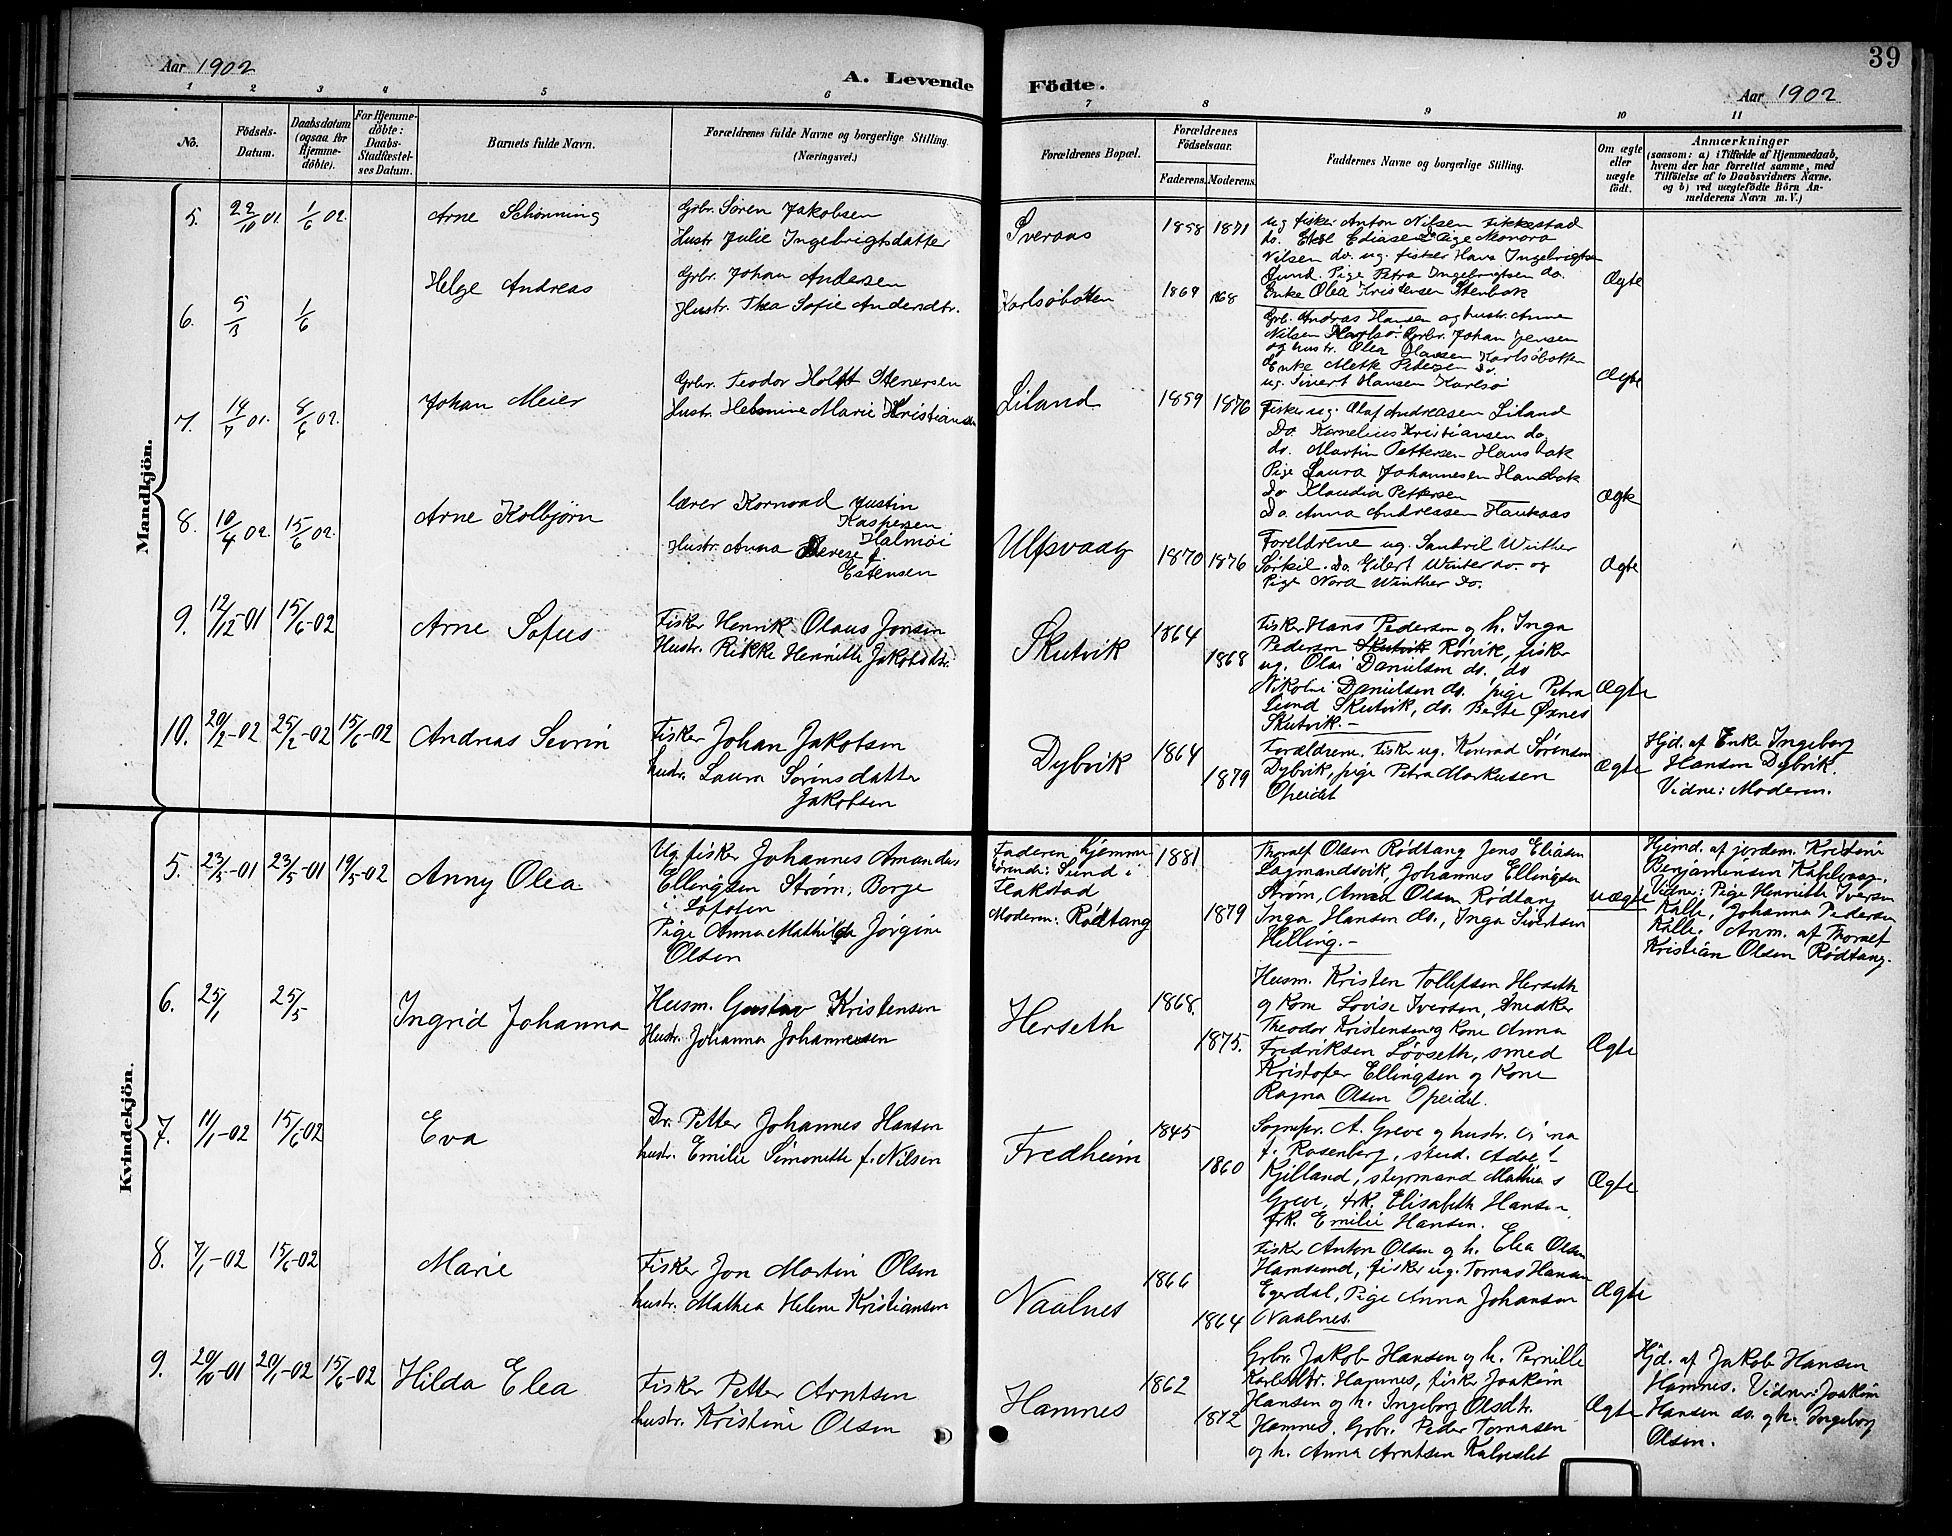 39
Aar 1902
A. Levende Fødte.
Aar 1902
1 2 3 4 5 6 7 8 9 10 11
No.
Födsels-
Datum.
Daabsdatum
(ogsaa for
Hjemme-
döbte).
For Hjemme-
döbte:
Daabs-
Stadfæstel-
ses Datum.
Barnets fulde Navn.
Forældrenes fulde Navne og borgerlige Stilling.
(Næringsvei.)
Forældrenes Bopæl.
Forældrenes
Födselsaar.
Faderens. Moderens.
Faddernes Navne og borgerlige Stilling.
Om ægte
eller
uægte
födt.
Anmærkninger
(saasom: a) i Tilfælde af Hjemmedaab,
hvem der har forrettet samme, med
Tilföielse af to Daabsvidners Navne.
og b) ved uægtefödte Börn An-
melderens Navn m. V.)
Mandkjön.
5. 22/10 01. 1/6 02. Arne Schönning
Grbr. Sören Jakobsen
Hustr. Julie Ingebrigtsdatter
Sveraas 1858 1871
ug fisker Anton Nilsen Fikkestad
Nilsen do. ug. fisker Hans Ingebrigtsen
Lund. Pige Petra Ingebrigtsen do.
Enke Olea Kristensen Stenbak
Ægte
6. 5/3 1/6 Helge Andreas
Grbr. Johan Andersen
Hustr. Thea Sofie Andersdtr.
Karlsöbotten 1869 168
Grb. Andras Hansen og hustr. Anne
Nilsen Karlsö. Grbr. Johan Jensen
og hustr. Olea Hansen Karlsöbotten
Enke Metk Pedersen Do.
ug. Sivert Hansen Karlsö
Ægte
7. 14/7 01. 8/6 02. Johan Meier
Grbr. Teodor Holst Stenersen
Hustr. Helmine Marie Kristiansen
Liland 1859 1876
Fisker ug. Olaf Andreasen Liland
Do. Kornelius Kristiansen do
do. Martin Pettersen Hansbak
Pige Laura Johannesen Handbak
Do Klaudia Pettersen
Do. Anna Andreassen Haukaas
Ægte
8. 10/4 02. 15/6 02. Arne Kolbjörn
lærer Kornvad Justin
Kaspersen
Halmöi
Hustr. Anna Therese f.
Estensen
Ulfsvaag 1870 1876
Foreldrene ug. Santvil Winther
Sorkil. Do. Eilert Winter do. og
Pige Nora Winther Do.
Ægte
9. 12/12-01 15/6-02 Arne Sofus
Fisker Henrik Olaus Jensen
Hustr. Rikke Henriette Jakobsdtr.
Skutvik 1864 1868
Fisker Hans Pedersen og h. Inga
Pedersen Skutvik Rørvik, fisker
ug. Olai Danielsen do., do
Nikolai Danielsen do. pige Petra
Lund Skutvik, do. Berte Øxnes
Skutvik.-
Ægte
10. 20/2-02 25/2-02 15/6-02 Andreas Sevrin
Fisker Johan Jakobsen
hustr. Laura Sørensdatter
Jakobsen
Dybvik 1864 1879
Forældrene. Fisker ug. Konrad Sørensen
Dybvik, pige Petra Markusen
Opeidet
Ægte
Hjd. af Enke Ingeborg
Hansen Dybvik.
Vidne: Moderen.
Kvindekjön.
5. 23/3-01 23/5-01 19/5-02 Anny Olea
Ug. fisker Johannes Amandus
Ellingsen Strøm, Borge
i Lofoten
Pige Anna Mathilda Jørgine
Olsen
Faderen hjemme-
hörende: Sund i
Flakstad
Moderen: Rødtang
1881 1879
Thoralf Olsen Rødtang Jens Eliasen
Lagmandsvik, Johannes Ellingsen
Strøm, Amen Olsen Rødtang
Inga Hansen do., Inga Sivertsen
Helling.-
uægte
Hjemd. af jordem. Kristine
Benjaminsen Kabelvaag.
Vidne: Pige Henriette Iversen
Kalle, Johanna Pedersen
Kalle. Anm. af Thoralf
Kristian Olsen Rødtang.
6. 25/1 25/5 Ingrid Johanna
Husm. Gustav Kristensen
Hustr. Johanna Johannesen
Herseth 1868. 1875.
Husm. Kristen Tollefsen Herseth
og Kone Lovise Iversen, Snedker
Theodor Kristensen og Kone Anna
Fredriksen Løvseth, smed
Kristofer Ellingsen og Kone
Ragna Olsen Opeidet.
Ægte
7. 11/1-02 15/6-02 Eva
Dr. Petter Johannes Hansen
hustr. Emilie Simonette f. Nilsen
Fredheim 1845 1860
Sognepr. A. Greve og hustr.
f. Rosenberg, stud.
Kjelland, styrmand Mathias
Greve, frk. Elisabeth Hansen,
frk. Emilie Hansen.
Ægte
8. 7/1-02 15/6-02 Marie
Fisker Jon Martin Olsen
hustr. Mathea Helene Kristiansen
Naalnes 1866 1864
Fisker Anton Olsen og h. Elea Olsen
Hamsund, fisker ug. Tomas Hansen
Egerdal, Pige Anna Johansen
Naalnes.
Ægte
9. 20/10-01 20/1-02 15/6-02 Hilda Elea
Fisker Petter Arntsen
hustr. Kristine Olsen
Hamnes 1862 1872
Grbr. Jakob Hansen og h. Pernille
Karlsdtr. Hamnes, fisker Joakim
Hansen og h. Ingeborg Olsdtr.
Hamnes. Grbr. Peder Tomasen
og h. Anna Arntsen Kalveslet
Ægte
Hjd. af Jakob Hansen
Hamnes. Vidner: Joakim
Hansen do. og h. Ingeborg
Olsen.